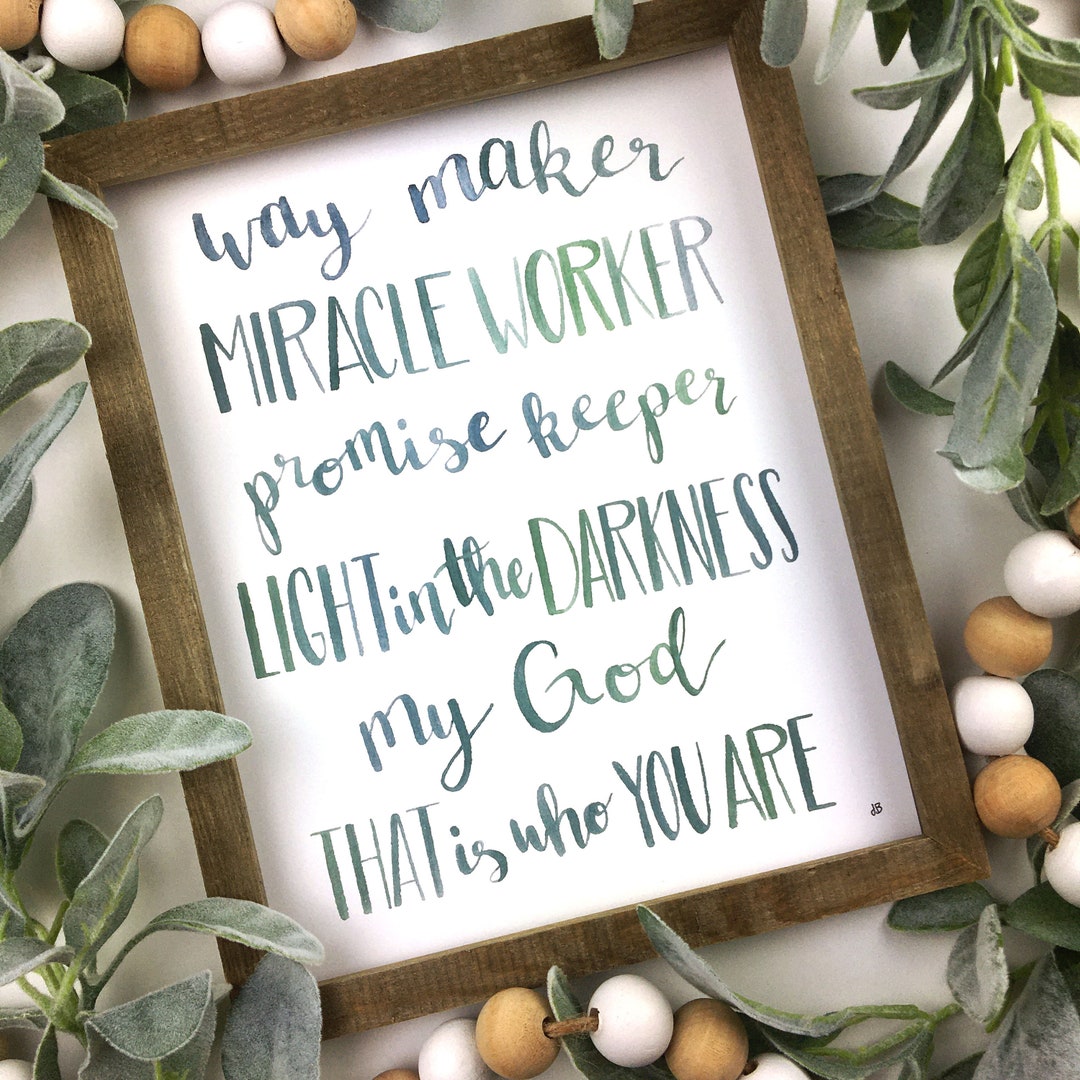 way maker
MIRACLE WORKER
promise keeper
LIGHT in the DARKNESS
my God
THAT is who YOU ARE
dB